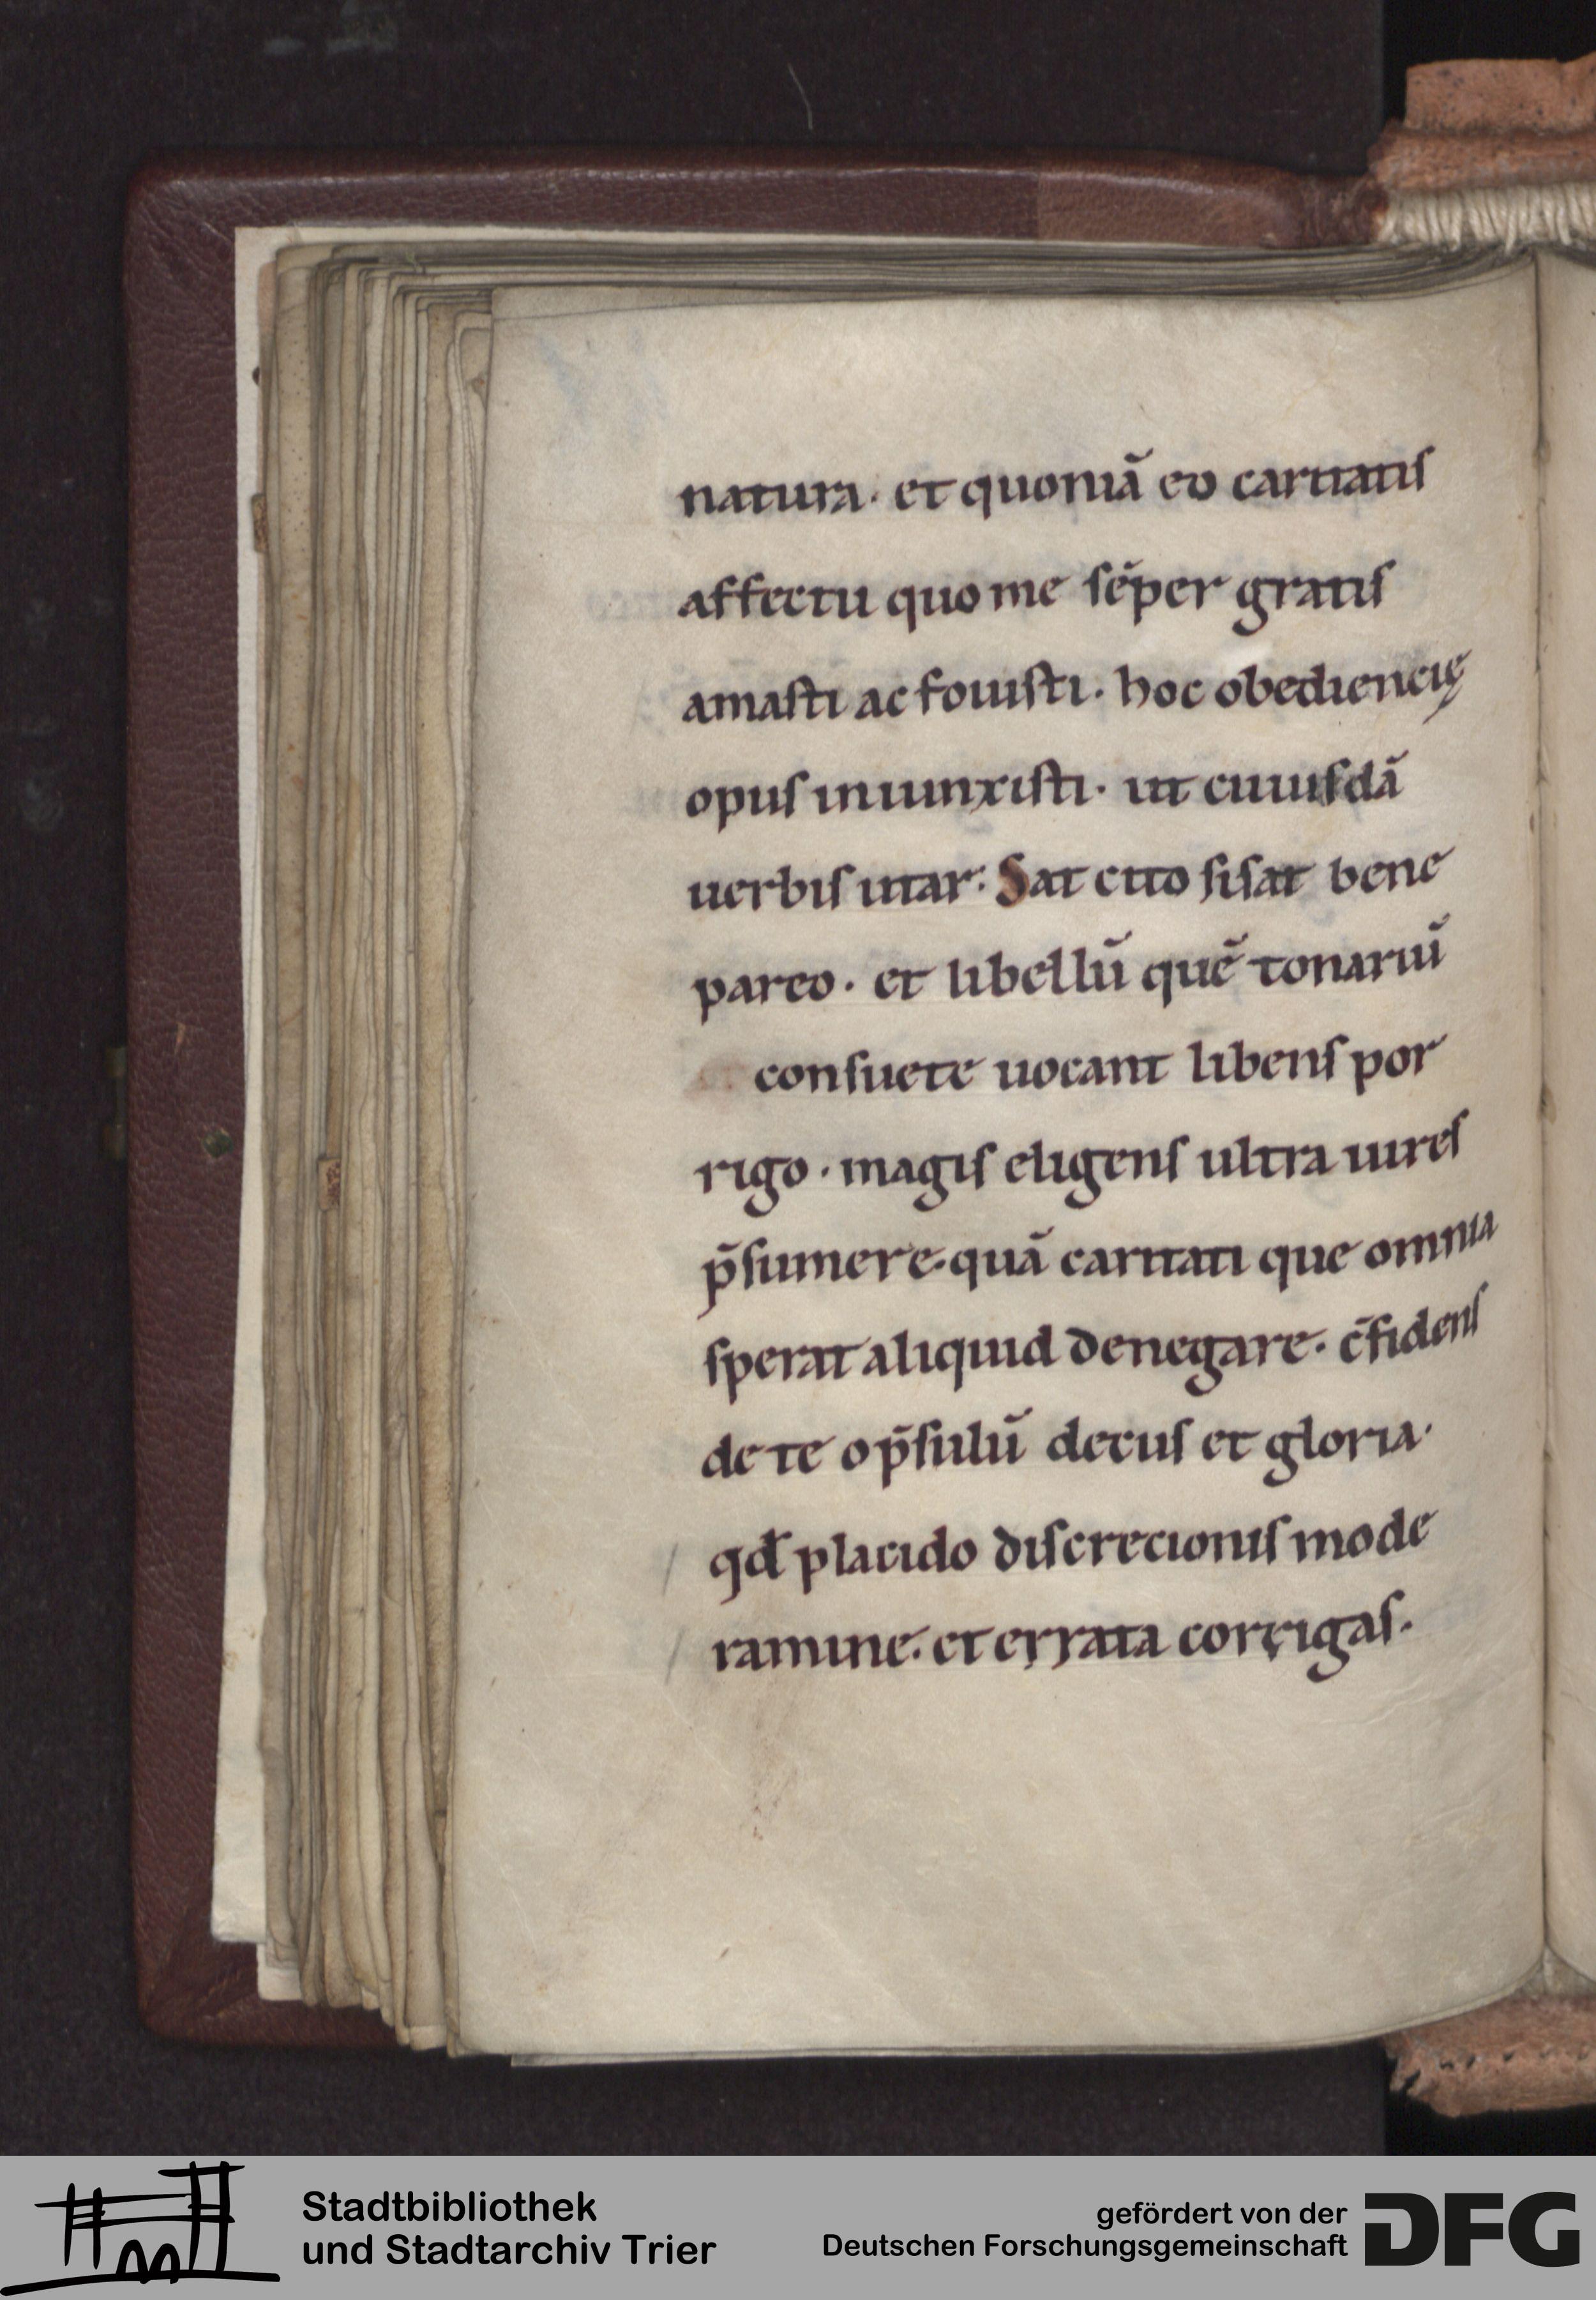 natura· et quoniā eo caritatis
affectu quo me sēper gratis
amasti ac fouisti· hoc obediencię
opus iniunxisti· ut cuiusdā
uerbis utar· Sat cito si sat bene
pareo· et libellū quē tonariū
consuete uocant libens por
rigo· magis eligens ultra uires
p̄sumere· quā caritati que omnia
sperat aliquid denegare· c̄fidens
de te o p̄sulū decus et gloria·
qđ placido discrecionis mode
ramine· et errata corrigas·
Stadtbibliothek
und Stadtarchiv Trier
gefördert von der
Deutschen Forschungsgemeinschaft
DFG